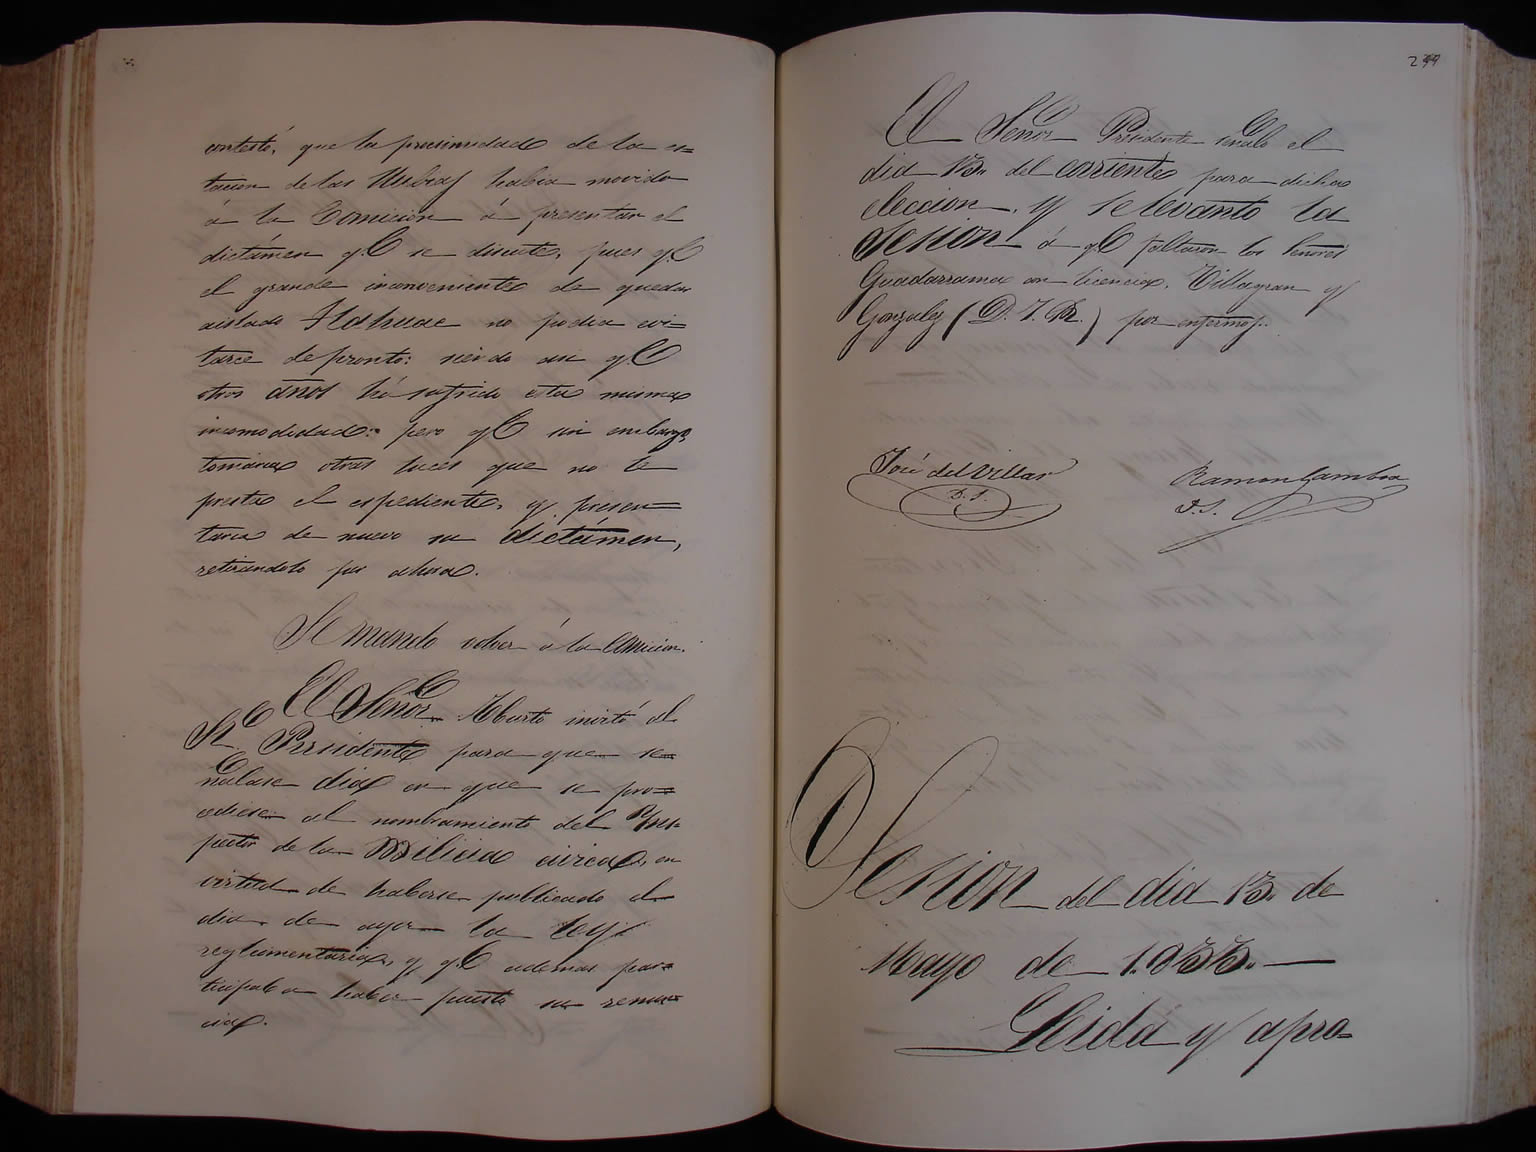 contestó, que la procsimidad de la es=
tacion de las llubias habia movido
á la Comicion á presentar el
dictámen q.e se discute, pues q.e
el grande inconveniente de quedar
aislado Tlahuac no podia evi=
tarce de pronto: siendo asi q.e
otros años há sufrido esta misma
incomodidad: pero q.e sin embargo,
tomaria otras luces que no le
presta el espediente, y presen=
taria de nuevo su dictámen,
retirandolo por ahora.
Se mandó volver á la Comicion.
El Señor Aburto invitó al
Sr. Presidente para que se=
ñalase dia en que se pro=
cediese al nombramiento del Ynes=
pector de la Milicia civica, en
virtud de haberse publicado el
dia de ayer la ley
reglamentaria, y q.e ademas par=
ticipaba haber puesto su renun=
cia.
299
El Señor Presidente señaló el
dia 13. del corriente para dicha
eleccion, y se levantó la
Sesion á q.e faltaron los Señores
Guadarrama con licencia, Villagran y
Gonzalez (D. J. M.) por enfermos.
José del Villar Ramon Gamboa
D. S. D. S.
Sesion del dia 13. de
Mayo de 1.833.
Leida y apro=